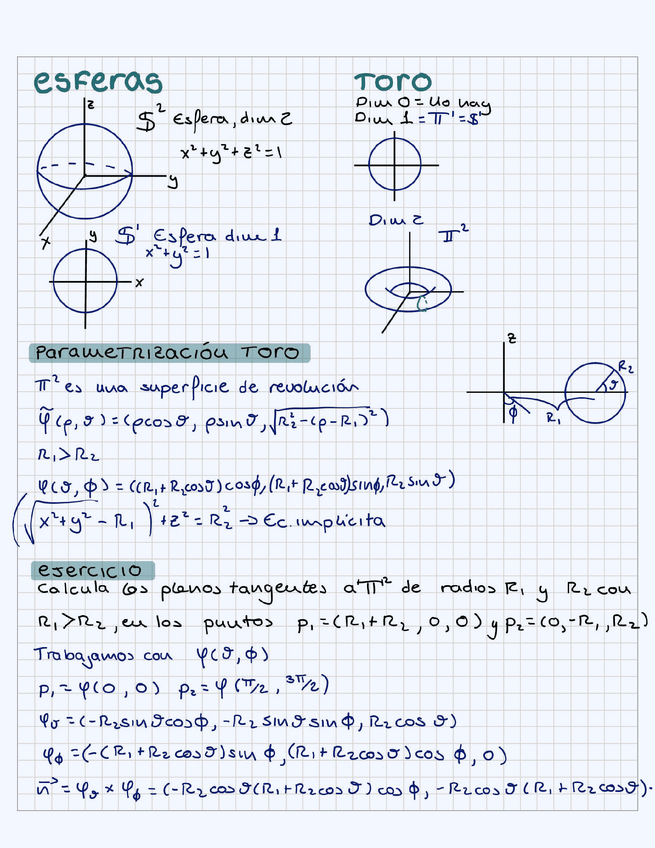 esferas
z
$² Esfera, dim 2
x²+y²+z²=1
y
x
y
$¹ Esfera dim 1
x²+y²=1
x
TORO
Dim 0 = No hay
Dim 1 = 𝕋¹=$¹
Dim 2
𝕋²
Parametrización Toro
𝕋² es una superficie de revolución
φ̃(ρ, ϑ)=(ρcosϑ, ρsinϑ, √(R₂²-(ρ-R₁)²))
R₁>R₂
z
R₂
ϑ
ϕ
R₁
φ(ϑ, ϕ) = ((R₁+R₂cosϑ)cosϕ, (R₁+R₂cosϑ)sinϕ, R₂sinϑ)
(√(x²+y²) - R₁)²+z² = R₂² → Ec. implícita
ejercicio
Calcula los planos tangentes a 𝕋² de radios R₁ y R₂ con
R₁>R₂, en los puntos p₁=(R₁+R₂, 0, 0) y p₂=(0,-R₁, R₂)
Trabajamos con φ(ϑ, ϕ)
p₁=φ(0, 0) p₂=φ(π/2, 3π/2)
φϑ=(-R₂sinϑcosϕ, -R₂sinϑsinϕ, R₂cosϑ)
φϕ=(-(R₁+R₂cosϑ)sinϕ, (R₁+R₂cosϑ)cosϕ, 0)
n⃗=φϑ × φϕ = (-R₂cosϑ(R₁+R₂cosϑ)cosϕ, -R₂cosϑ(R₁+R₂cosϑ)·